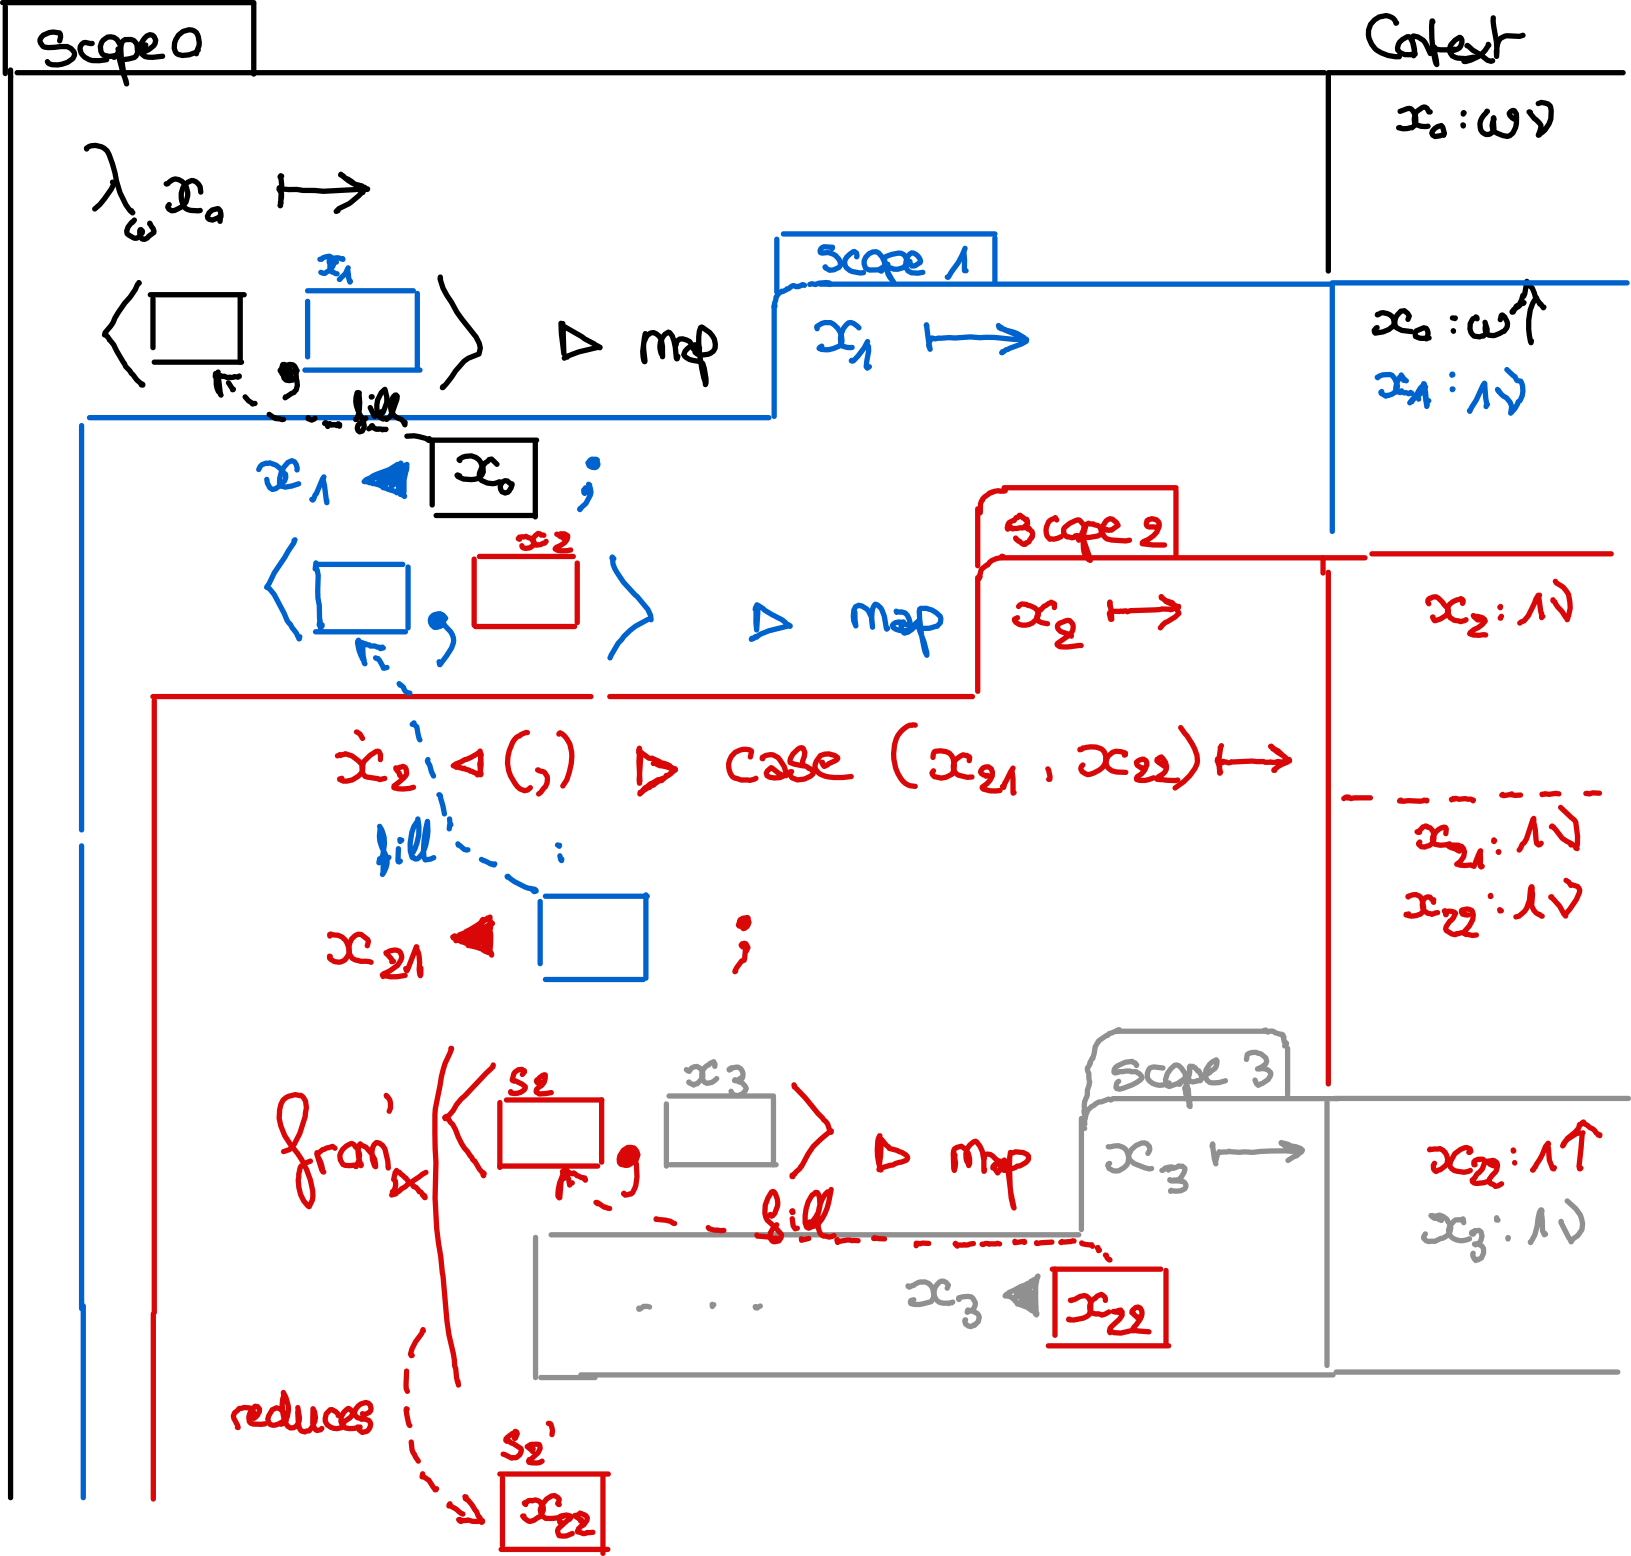 scope 0 Context
x₀ : ων
λ_ω x₀ ↦
scope 1
x₁
⟨ □ , □ ⟩ ▷ map x₁ ↦
x₀ : ω↑
x₁ : 1ν
fill
x₁ ◀ x₀ ;
scope 2
x₂
⟨ □ , □ ⟩ ▷ map x₂ ↦
x₂ : 1ν
x₂ ◁ (,) ▷ case (x₂₁ , x₂₂) ↦
x₂₁ : 1ν
x₂₂ : 1ν
fill :
x₂₁ ◀ □ ;
scope 3
s₂ x₃
from'⋉ ( ⟨ □ , □ ⟩ ▷ map x₃ ↦
x₂₂ : 1↑
x₃ : 1ν
fill
. . . x₃ ◀ x₂₂
reduces
s₂'
x₂₂